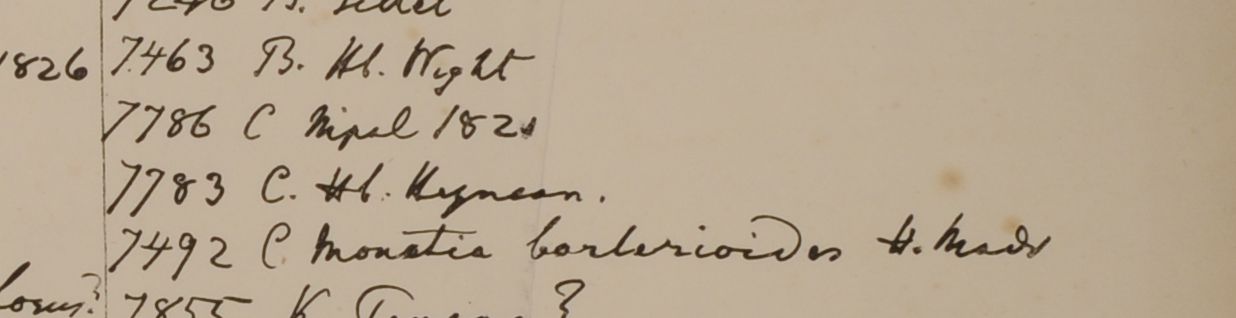 7240 B.
1826 7463 B. Hb. Wight
7786 C Nipal 1821
7783 C. Hb. Heynean.
7492 C. Monatia barlerioides H. Mads
locus? 7855 K ?